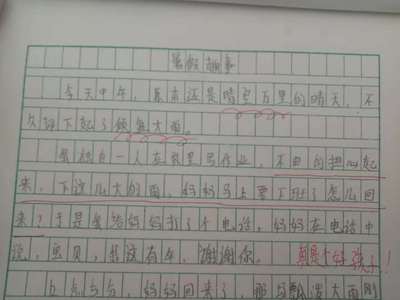 暑假趣事
今天中午，原本还是晴空万里的晴天，不
久却下起了倾盆大雨。
我独自一人在家里写作业，不由的担心起
来，下这么大的雨，妈妈马上要下班了怎么回
来？于是我给妈妈打了个电话，妈妈在电话中
说，宝贝，我这有伞，谢谢你。 真是个好孩子！
妈妈回来了，大雨